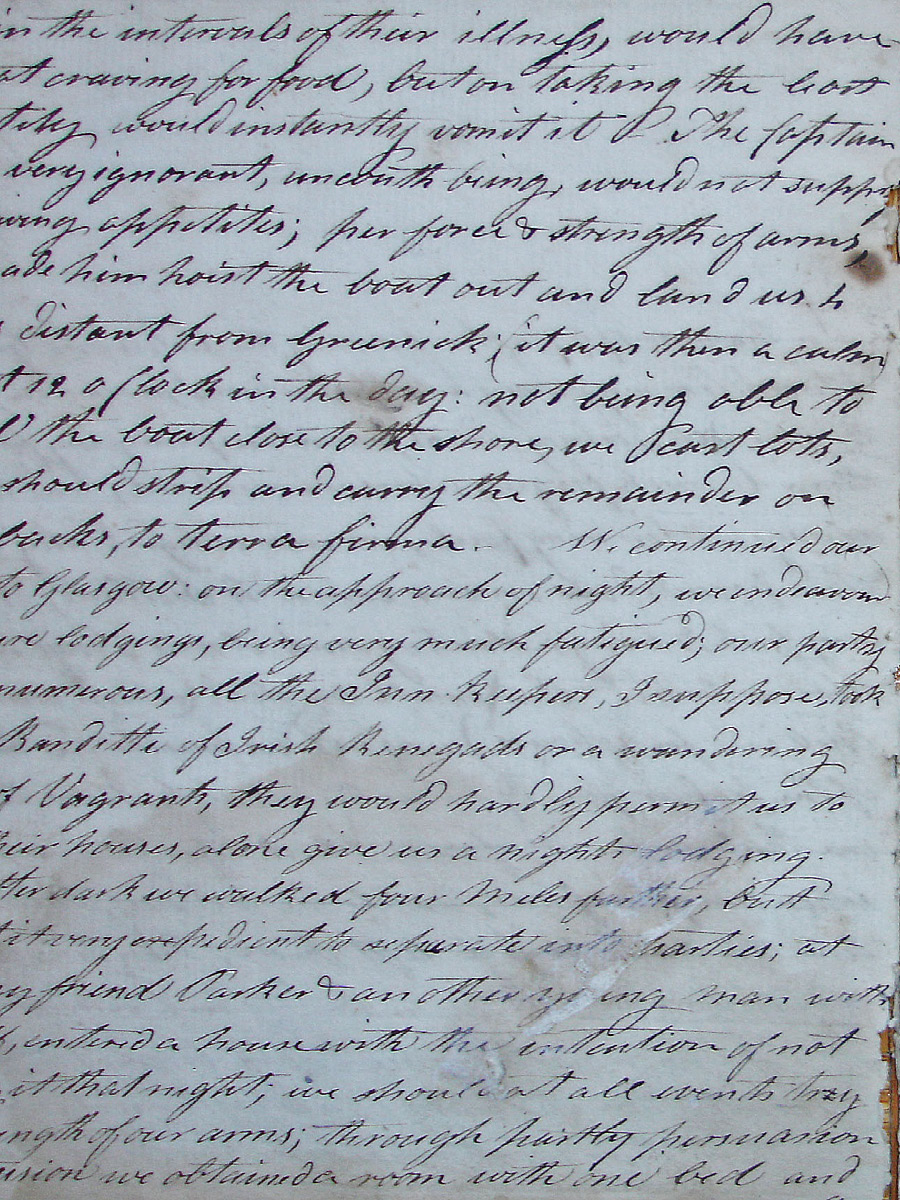 in the intervals of their illness, would have
at craving for food, but on taking the least
tity would instantly vomit it The Captain
very ignorant, uncouth being, would not supp
ving appetites; per force & strength of arms,
ade him hoist the boat out and land us
distant from Greenick; (it was then a calm
t 12 o Clock in the day: not being able to
the boat close to the shore, we cast lots,
should strip and carry the remainder on
backs, to terra firma. We continued our
to Glasgow: on the approach of night, we endeavour
ure lodgings, being very much fatigued; our party
numerous, all the Inn keepers, I suppose, took
Banditte of Irish Renegads or a wandering
of Vagrants, they would hardly permit us to
heir houses, alone give us a nights lodging.
fter dark we walked four Miles further, but
t it very expedient to separate into parties; at
my friend Parker & another young man with
f, entered a house with the intention of not
it that night; we should at all events try
ength of our arms; through partly persuasion
usion we obtained a room with one bed and